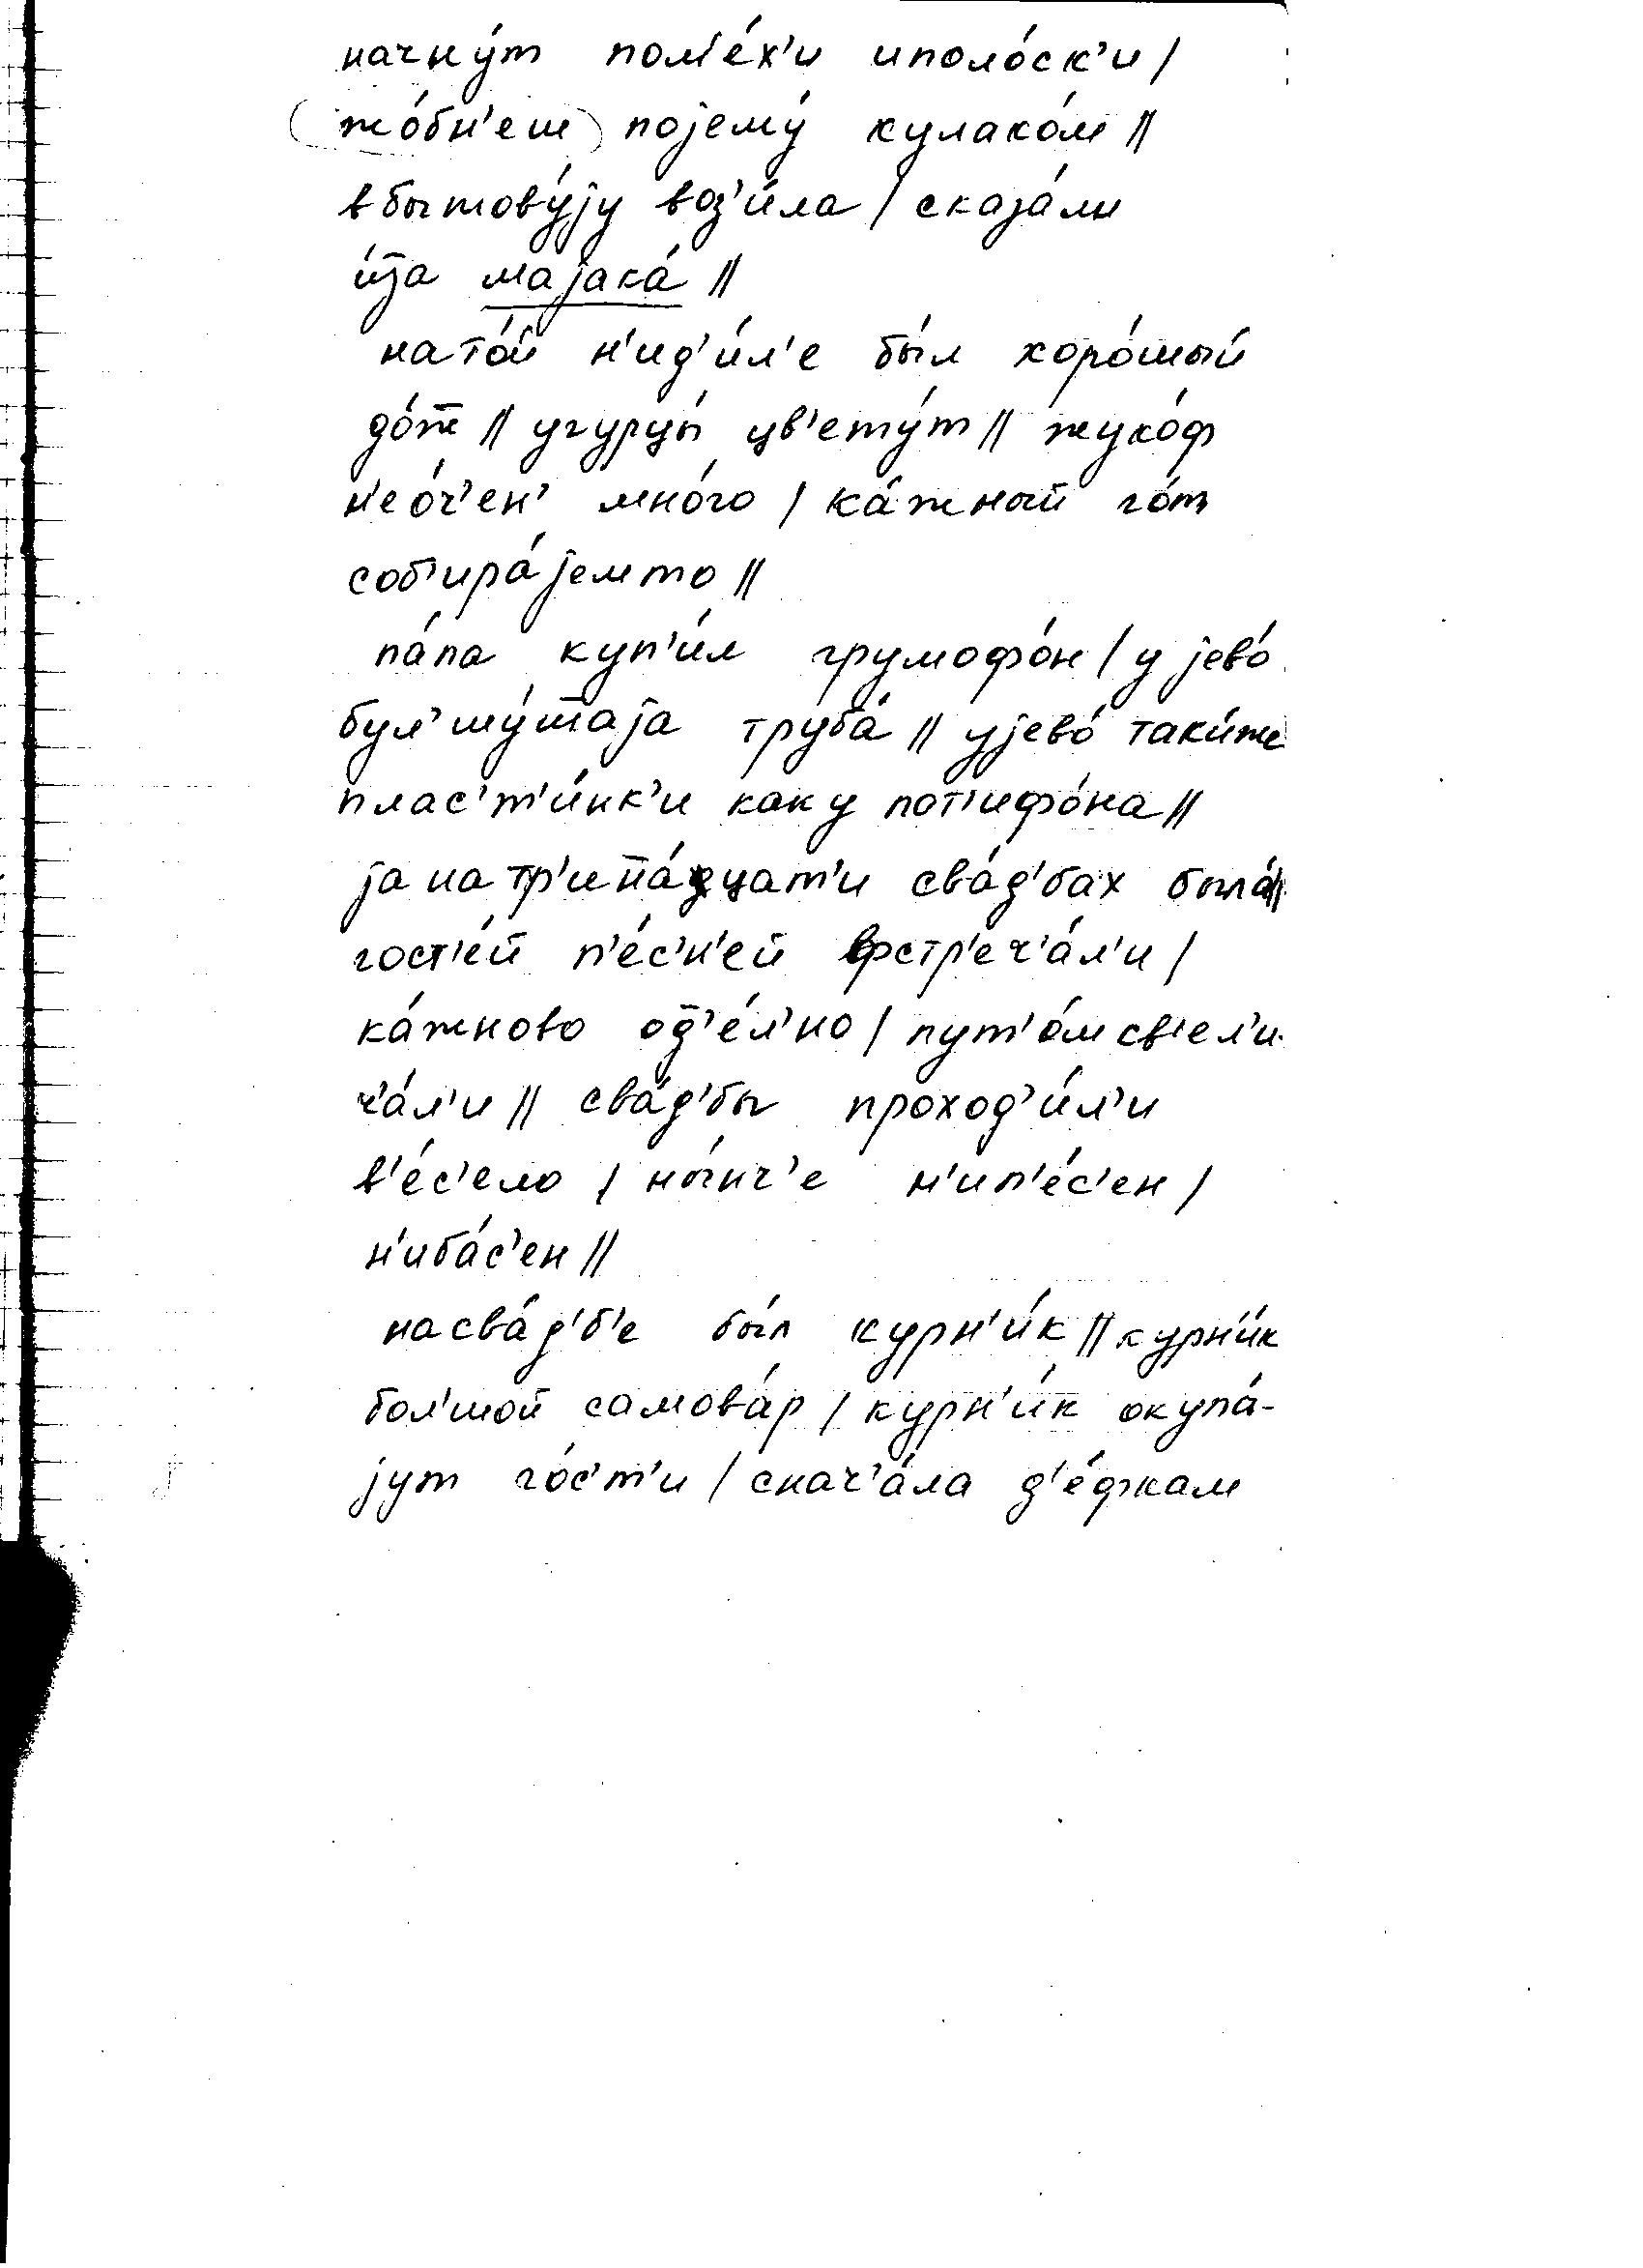 начну́т пом'е́х'и иполо́ск'и /
(жо́бн'еш) појему́ кулако́м //
вбытову́ју воз'и́ла / сказа́ли
и́з̄а мајака́ //
нато́й н'ид'и́л'е бы́л хоро́шый
до́ж̄ // угурцы́ цв'ету́т // жуко́ф
н'ео́ч'ен' мно́го / ка́жный го́т
соб'ира́јемто //
па́па куп'и́л грумофо́н / у јево́
бул'шу́т̄аја труба́ // ујево́ таки́же
плас'т'и́нк'и каку пот'ифо́на //
ја натр'ин̄а́дцат'и сва́д'бах была́ //
гост'е́й п'е́с'н'ей фстр'еч'а́л'и /
ка́жново од̄'е́л'но / пут'о́м св'ел'и-
ч'а́л'и // сва́д'бы проход'и́л'и
в'е́с'ело / ны́нч'е н'ип'е́с'ен /
н'иба́с'ен //
насва́д'б'е бы́л курн'и́к // курн'и́к
бол'шой самова́р / курн'и́к окупа́-
јут го́с'т'и / снач'а́ла д'е́фкам